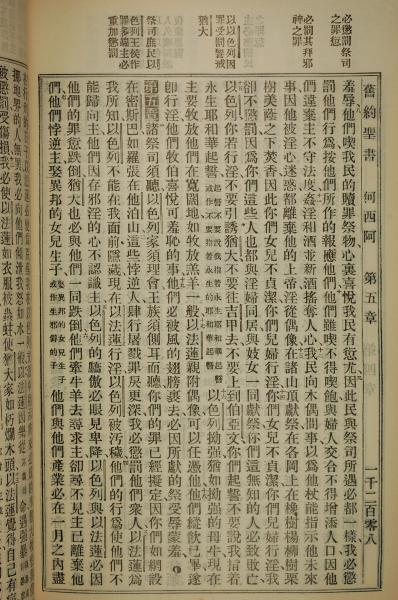 必懲罰祭司
之罪愆
必罰其拜邪
神之罪
以以色列因
罪受罰警戒
猶大
祭司庶民以
色列王侯作
罪多端主必
重加懲罰
舊約聖書 何西阿 第五章 一千二百零八
羞辱他們喫我民的贖罪祭物心裏喜悅我民有愆尤因此民與祭司所遇必都一樣我必懲
罰他們行爲按他們所作的報應他們他們雖喫不得喫飽與婦人交合不得增添人口因他
們違棄主不守法度姦淫和酒並新酒搖奪人心我民向木偶問事以爲他杖能指示他未來
事因他被淫心迷惑都離棄他的上帝淫從偶像在諸山頂獻祭在各岡上在橡樹楊柳樹栗
樹美蔭之下焚香因此你們女兒不貞潔你們兒婦行淫你們女兒不貞潔你們兒婦行淫我
卻不懲罰因爲你們這些人也都與淫婦同居與妓女一同獻祭你們這無知的人必致敗亡
以色列你若行淫不要引誘猶大不要往吉甲去不要上到伯亞文你們起誓不要說我指着
永生耶和華起誓 以色列拗強猶如拗強的母牛現在
主要牧放他們在寬闊地如牧放羔羊一般以法蓮親附偶像可以任憑他他們縱飲已畢遂
卽行淫他們牧伯喜悅可羞恥的事他們必被風的翅膀裹去必因所獻的祭受辱蒙羞
第五章諸祭司須聽以色列家須理會王族須側耳而聽你們的罪已經擬定因你們如網設
在密斯巴如羅張在他泊山這些悖逆人肆行屠戮罪戾更深我必懲罰他們衆人以法蓮爲
我所知以色列不能在我面前隱藏現在以法蓮行淫以色列被污穢他們的行爲使他們不
能歸向主他們因存邪淫的心不認識主以色列的驕傲必眼見卑降以色列與以法蓮必因
他們的罪愆跌倒猶大也必與他們一同跌倒他們牽牛羊去尋求主卻尋不見主已離棄他
們他們悖逆主娶異邦的女兒生子 他們與他們產業必在一月之內盡